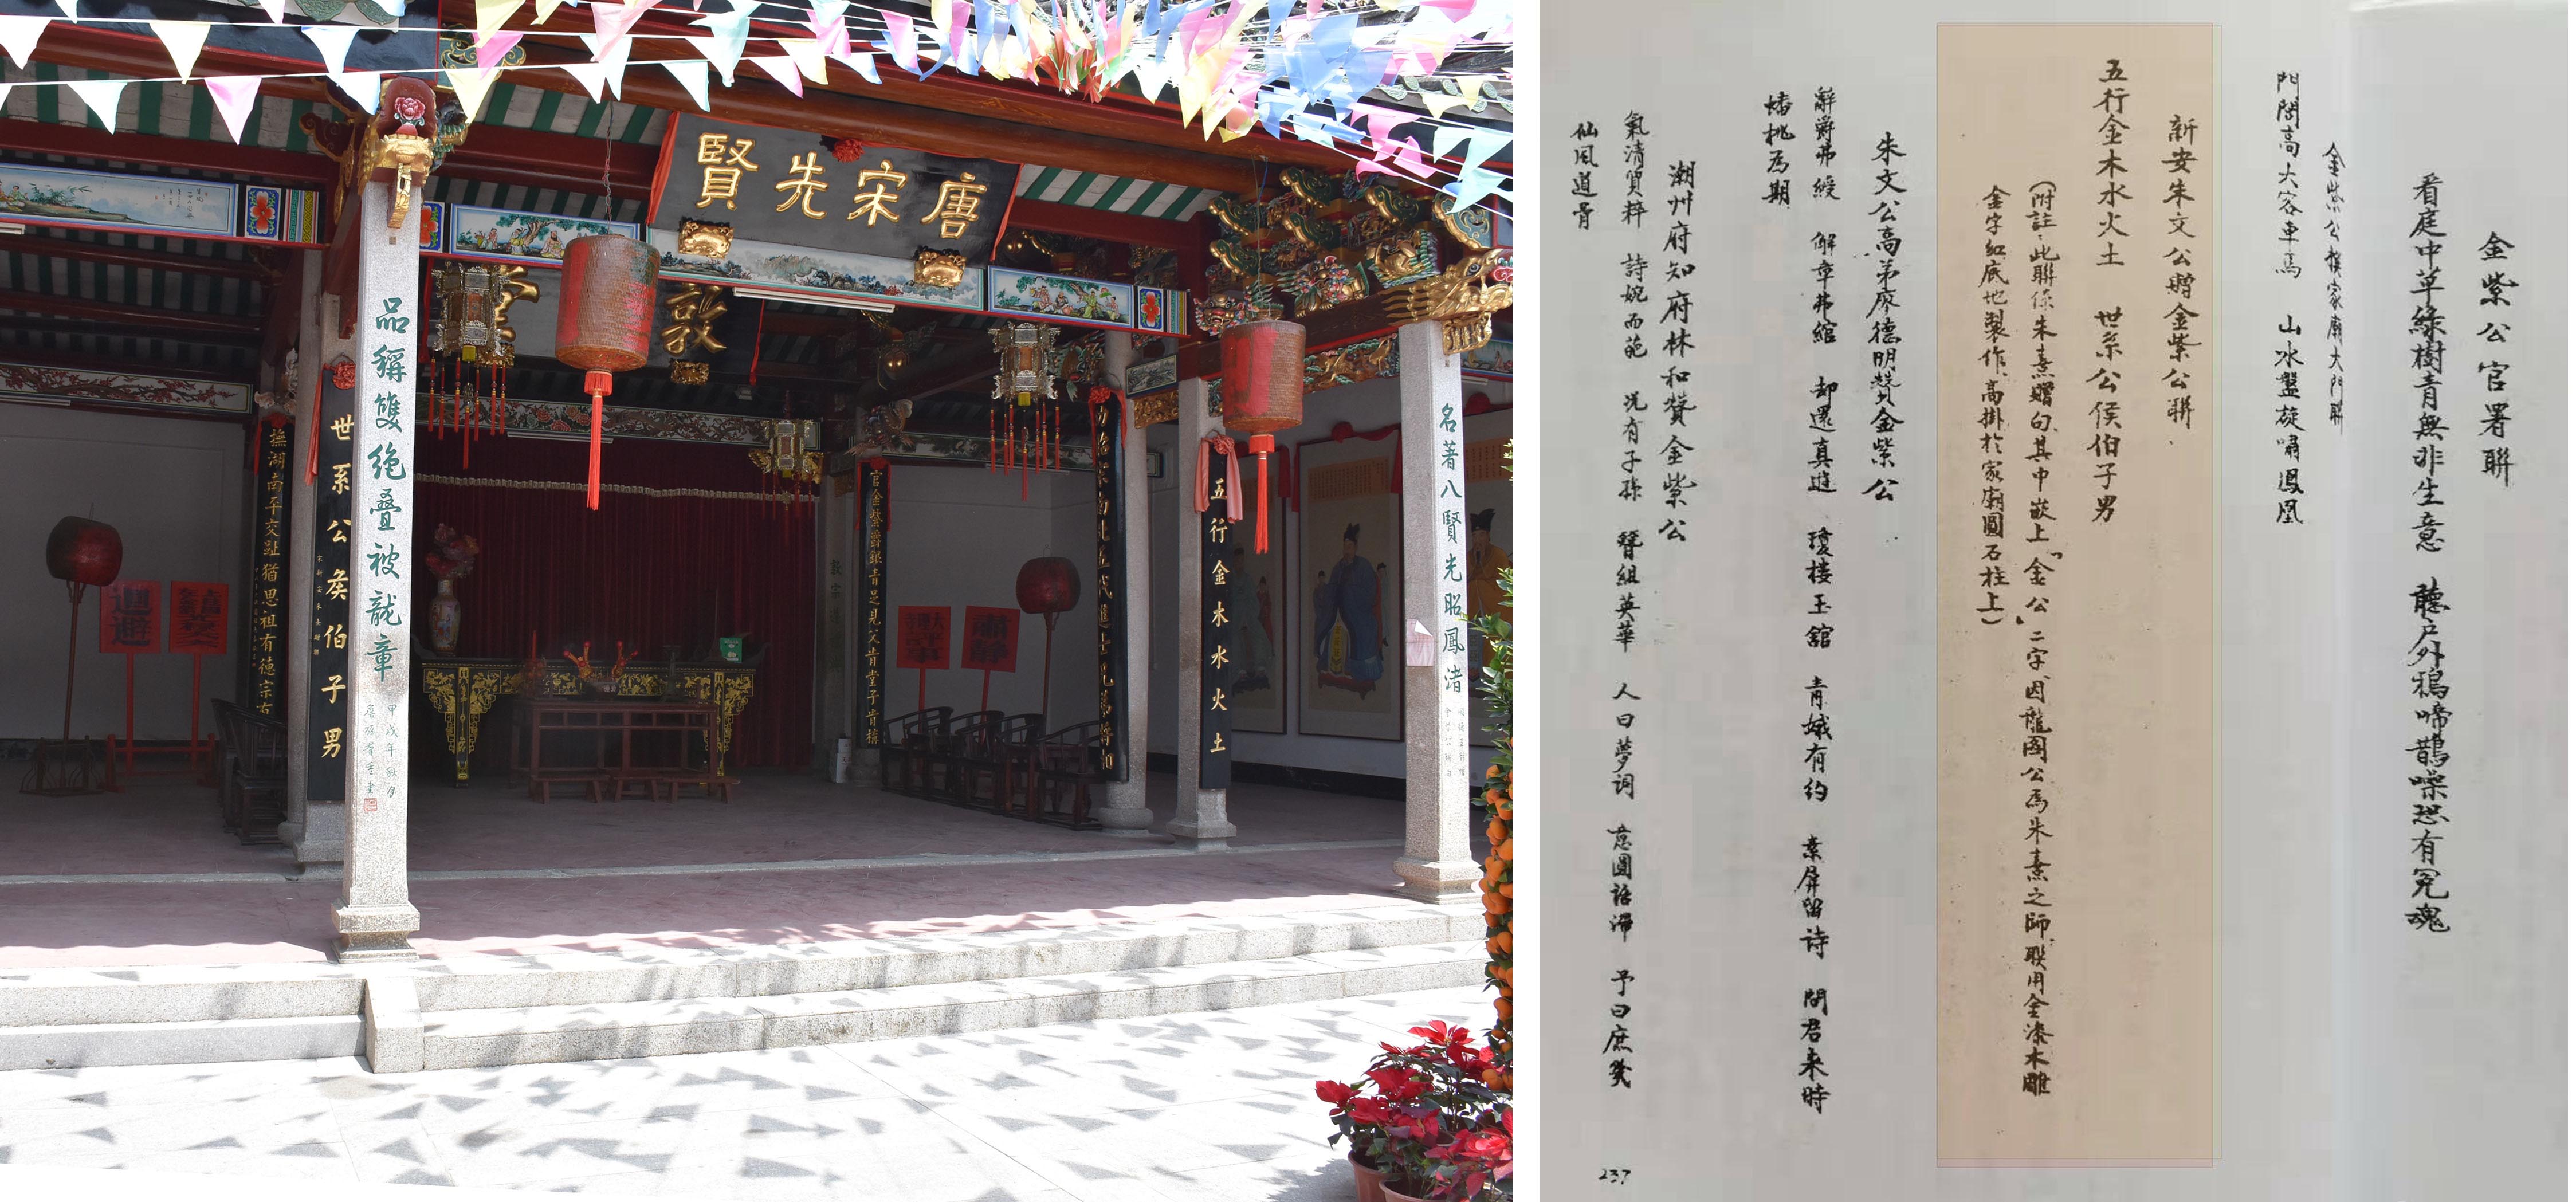 唐宋先賢
敦
名著八賢光昭鳳渚
品稱雙絶叠被龍章
甲戌年秋月
五行金木水火土
世系公矦伯子男
官金紫爵銀青足見父肯堂子肯構
撫湖南平交趾猶思祖有德宗有
肅靜
迴避
金紫公官署聯
看庭中草綠樹青無非生意 聽戶外鴉啼鵲噪恐有冤魂
金紫公揆家廟大門聯
門閭高大容車馬 山水盤旋嘯鳳凰
新安朱文公贈金紫公聯
五行金木水火土 世系公侯伯子男
(附註:此聯係朱熹贈句其中嵌上「金公」二字因龍圖公為朱熹之師聯用金漆木雕
金字紅底地製作高掛於家廟圓石柱上)
朱文公高弟廖德明贊金紫公
辭爵弗綬 解章弗綰 却還真遊 瓊樓玉舘 青娥有約 素屏留詩 問君来時
蟠桃為期
潮州府知府林和贊金紫公
氣清質粹 詩婉而葩 况有子孫 簪組英華 人曰夢詞 意圓語滯 予曰庶幾
仙风道骨
237